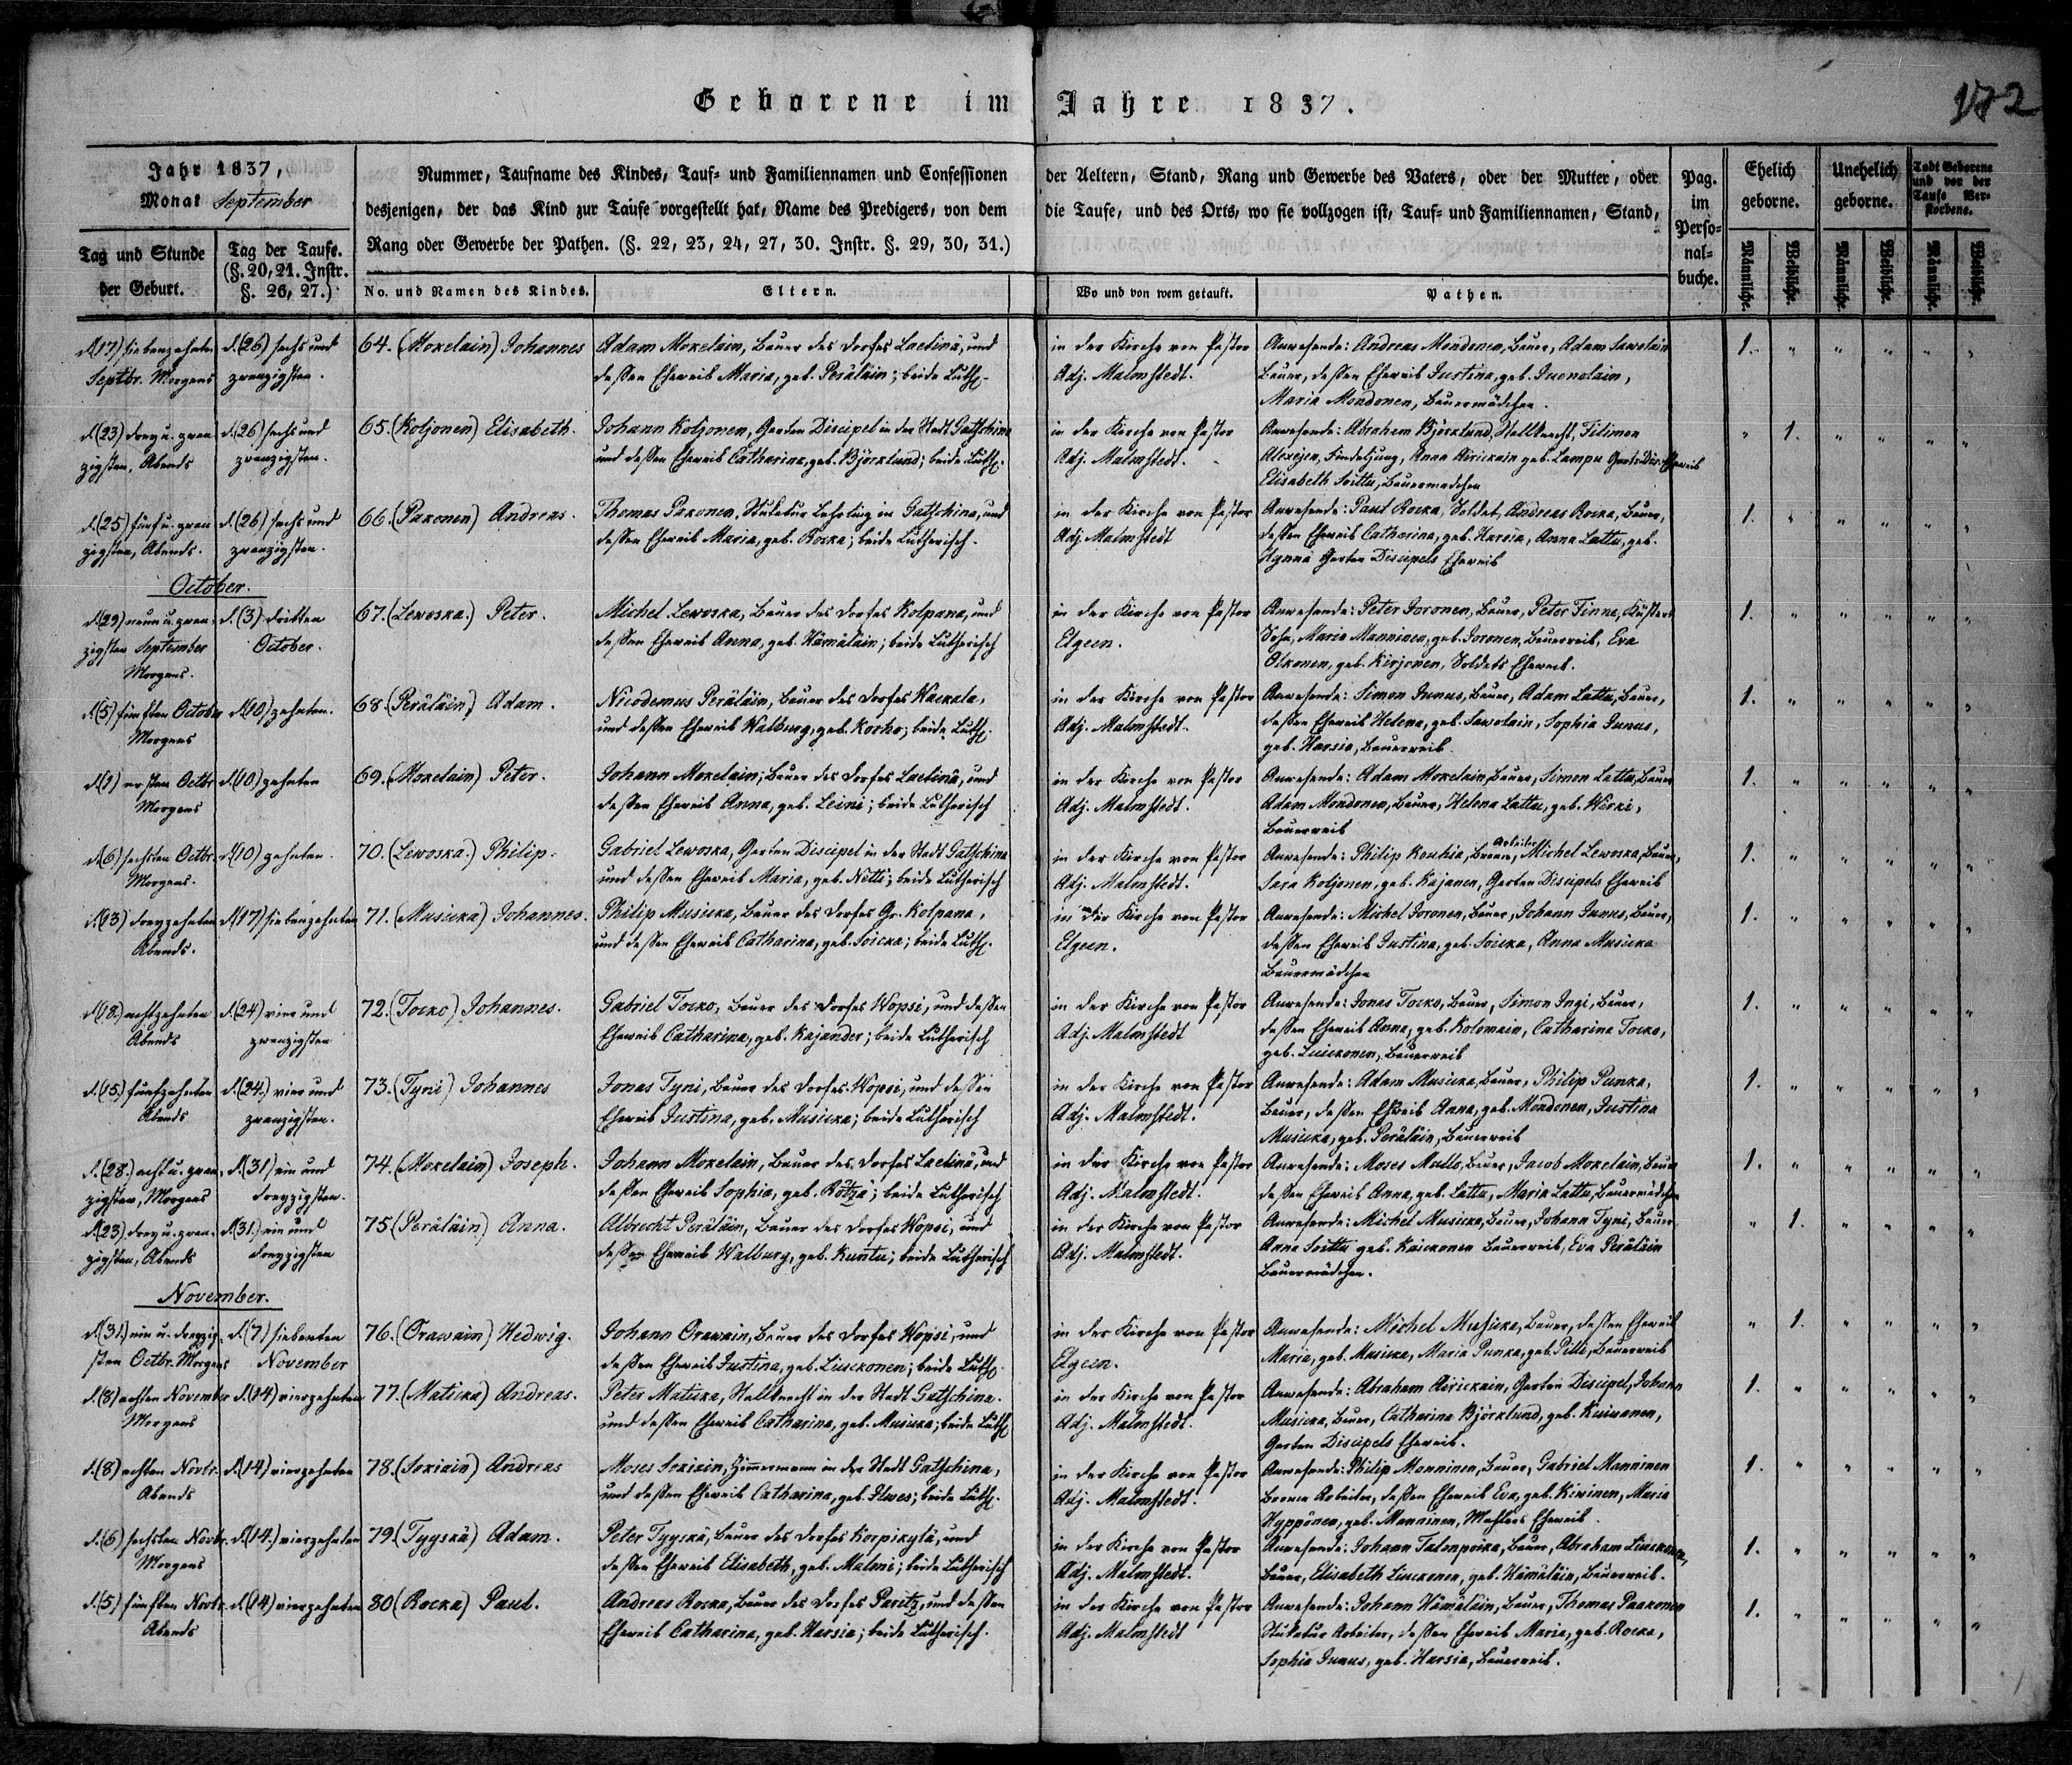 Geborene im Jahre 1837.
172
Jahr 1837,
Monat September
Tag und Stunde
der Geburt.
Tag der Taufe.
(§. 20, 21. Instr.
§. 26, 27.)
Nummer, Taufname des Kindes, Tauf- und Familiennamen und Confessionen der Aeltern, Stand, Rang und Gewerbe des Vaters, oder der Mutter, oder
desjenigen, der das Kind zur Taufe vorgestellt hat, Name des Predigers, von dem die Taufe, und des Orts, wo sie vollzogen ist, Tauf- und Familiennamen, Stand,
Rang oder Gewerbe der Pathen. (§. 22, 23, 24, 27, 30. Instr. §. 29, 30, 31.)
No. und Namen des Kindes.
Eltern.
Wo und von wem getauft.
Pathen.
Pag. im Perso-nal-buche.
Ehelich geborne.
Unehelich geborne.
Todt Geborene und vor der Taufe Ver-storbene.
Männliche. Weibliche. Männliche. Weibliche. Männliche. Weibliche.
d. (17) siebenzehnten Septbr. Morgens
d. (26) sechs und zwanzigsten.
64. (Moxelain) Johannes
Adam Moxelain, Bauer des Dorfes Laedinä, und
dessen Eheweib Maria, geb. Peräläin; beide Luth.
in der Kirche von Pastor
Adj. Malmstedt.
Anwesende: Andreas Mondonen, Bauer, Adam Sawolain
Bauer, dessen Eheweib Justina, geb.
Maria Mondonen, Bauermädchen.
1.
d. (23) drey u. zwanzigsten, Abends
d. (26) sechs und zwanzigsten.
65. (Koljonen) Elisabeth.
Johann Koljonen, Garten Discipel in der Stadt Gatschina
und dessen Eheweib Catharina, geb. Björklund; beide Luth.
in der Kirche von Pastor
Adj. Malmstedt.
Anwesende: Abraham Björklund, Stallknecht, Filimon
Alexejew, Findeljung, Anna Airickain geb. Lampu Garten Disc. Eheweib
Elisabeth Soittu, Bauermädchen
1.
d. (25) fünf u. zwanzigsten, Abends.
d. (26) sechs und zwanzigsten.
66. (Paxonen) Andreas.
Thomas Paxonen, Stukatur Lehrling in Gatschina, und
dessen Eheweib Maria, geb. Rocka; beide Lutherisch.
in der Kirche von Pastor
Adj. Malmstedt
Anwesende: Paul Rocka, Soldat, Andreas Rocka, Bauer,
dessen Eheweib Catharina, geb. Harsia, Anna Lattu, geb.
Hynnä Garten Discipels Eheweib
1.
October.
d. (29) neun u. zwanzigsten September Morgens.
d. (3) dritten October.
67. (Lewoska.) Peter.
Michel Lewoska, Bauer des Dorfes Kolpana, und
dessen Eheweib Anna, geb. Hämäläin; beide Lutherisch
in der Kirche von Pastor
Elgeen.
Anwesende: Peter Joronen, Bauer, Peter Tinne, Küsters
Sohn, Maria Manninen, geb. Joronen, Bauerweib, Eva
Olkonen, geb. Kirjonen, Soldats Eheweib.
1.
d. (5) fünften October Morgens
d. (10) zehnten.
68. (Peräläin) Adam.
Nicodemus Peräläin, Bauer des Dorfes Wackala,
und dessen Eheweib Walburg, geb. Korho; beide Luth.
in der Kirche von Pastor
Adj. Malmstedt.
Anwesende: Simon Junus, Bauer, Adam Lattu, Bauer,
dessen Eheweib Helena, geb. Sawolain, Sophia Junus,
geb. Harsia, Bauerweib.
1.
d. (1) ersten Octbr Morgens
d. (10) zehnten
69. (Moxelain) Peter.
Johann Moxelain, Bauer des Dorfes Laedinä, und
dessen Eheweib Anna, geb. Leini; beide Lutherisch
in der Kirche von Pastor
Adj. Malmstedt.
Anwesende: Adam Moxelain, Bauer, Simon Lattu, Bauer
Adam Mondonen, Bauer, Helena Lattu, geb. Wirki,
Bauerweib
1.
d. (6) sechsten Octbr. Morgens.
d. (10) zehnten.
70. (Lewoska.) Philip.
Gabriel Lewoska, Garten Discipel in der Stadt Gatschina
und dessen Eheweib Maria, geb. Netti; beide Lutherisch
in der Kirche von Pastor
Adj. Malmstedt.
Anwesende: Philip Koukia, Arbeiter, Michel Lewoska, Bauer,
Sara Koljonen, geb. Kajanen, Garten Discipels Eheweib
1.
d. (13) dreyzehnten Abends.
d. (17) siebenzehnten
71. (Musicka) Johannes.
Philip Musicka, Bauer des Dorfes Gr. Kolpana,
und dessen Eheweib Catharina, geb. Soicka; beide Luth.
in der Kirche von Pastor
Elgeen.
Anwesende: Michel Joronen, Bauer, Johann Junus, Bauer,
dessen Eheweib Justina, geb. Soicka, Anna Musicka
Bauermädchen
1.
d. (18.) achtzehnten Abends
d. (24) vier und zwanzigsten
72. (Tocko) Johannes.
Gabriel Tocko, Bauer des Dorfes Wopsi, und dessen
Eheweib Catharina, geb. Kajander; beide Lutherisch
in der Kirche von Pastor
Adj. Malmstedt
Anwesende: Jonas Tocko, Bauer, Simon Ingi, Bauer,
dessen Eheweib Anna, geb. Kolomain, Catharina Tocko,
geb. Liuckonen, Bauerweib
1.
d. (15.) fünfzehnten Abends
d. (24.) vier und zwanzigsten.
73. (Tyni) Johannes
Jonas Tyni, Bauer des Dorfes Wopsi, und dessen
Eheweib Justina, geb. Musicka; beide Lutherisch
in der Kirche von Pastor
Adj. Malmstedt.
Anwesende: Adam Musicka, Bauer, Philip Punka,
Bauer, dessen Eheweib Anna, geb. Mondonen, Justina
Musicka, geb. Peräläin, Bauerweib
1.
d. (28.) acht u. zwanzigsten, Morgens
d. (31) ein und dreyzigsten.
74. (Moxelain) Joseph.
Johann Moxelain, Bauer des Dorfes Laedinä, und
dessen Eheweib Sophia, geb. Rötzä; beide Lutherisch
in der Kirche von Pastor
Adj. Malmstedt.
Anwesende: Moses Mullo, Bauer, Jacob Moxelain, Bauer
dessen Eheweib Anna, geb. Lattu, Maria Lattu, Bauermädchen
1.
d. (23) drey u. zwanzigsten, Abends
d. (31.) ein und dreyzigsten
75 (Peräläin) Anna.
Albrecht Peräläin, Bauer des Dorfes Wopsi, und
dessen Eheweib Walburg, geb. Kuntu; beide Lutherisch
in der Kirche von Pastor
Adj. Malmstedt.
Anwesende: Michel Musicka, Bauer, Johann Tyni, Bauer
Anna Soittu geb. Kaickonen Bauerweib, Eva Peräläin
Bauermädchen.
1.
November.
d. (31.) ein u. dreyzigsten Octbr. Morgens
d. (7) siebenten November
76. (Orawain) Hedwig.
Johann Orawain, Bauer des Dorfes Wopsi, und
dessen Eheweib Justina, geb. Liuckonen; beide Luth.
in der Kirche von Pastor
Elgeen.
Anwesende: Michel Musicka, Bauer, dessen Eheweib
Maria, geb. Musicka, Maria Punka, geb. Pilli, Bauerweib
1.
d. (8) achten November Morgens
d. (14) vierzehnten
77. (Maticka) Andreas.
Peter Maticka, Stallknecht in der Stadt Gatschina.
und dessen Eheweib Catharina, geb. Musicka; beide Luth.
in der Kirche von Pastor
Adj. Malmstedt.
Anwesende: Abraham Airickain, Garten Discipel, Johann
Musicka, Bauer, Catharina Björklund, geb. Kuiwanen,
Garten Discipels Eheweib.
1.
d. (8) achten Novbr. Abends
d. (14) vierzehnten
78. (Soxiain) Andreas
Moses Soxiain, Zimmermann in der Stadt Gatschina,
und dessen Eheweib Catharina, geb. Ilwes; beide Luth.
in der Kirche von Pastor
Adj. Malmstedt.
Anwesende: Philip Manninen, Bauer, Gabriel Manninen
Arbeiter, dessen Eheweib Eva, geb. Kiwinen, Maria
Hyppönen, geb. Manninen, Mahlers Eheweib.
1.
d. (6) sechsten Novbr. Morgens
d. (14.) vierzehnten
79. (Tyyskä) Adam.
Peter Tyyskä, Bauer des Dorfes Korpikylä, und
dessen Eheweib Elisabeth, geb. Malmi; beide Lutherisch
in der Kirche von Pastor
Adj. Malmstedt.
Anwesende: Johann Talonpoika, Bauer, Abraham Liuckonen,
Bauer, Elisabeth Liuckonen, geb. Hämäläin, Bauerweib.
1.
d. (5) fünften Novbr. Abends
d. (14) vierzehnten
80 (Rocka) Paul.
Andreas Rocka, Bauer des Dorfes Paritz, und dessen
Eheweib Catharina, geb. Harsia; beide Lutherisch.
in der Kirche von Pastor
Adj. Malmstedt
Anwesende: Johann Hämäläin, Bauer, Thomas Paakonen
Stukatur Arbeiter, dessen Eheweib Maria, geb. Rocka,
Sophia Junus, geb. Harsia, Bauerweib.
1.